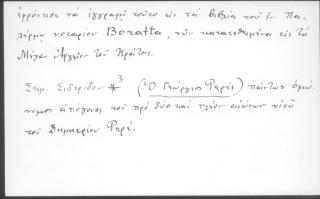 ἐφρόντισε τὰ ἔγγραφα τοῦτο εἰς τὰ βιβλία τοῦ ἐν Πα-
λέρμῃ νοταρίου Boratta, νῦν κατατεθειμένα εἰς τὸ
Μέγα Ἀρχεῖον τοῦ Κράτους.
Σημ. Σιδερίδου * 3 (Ὁ Γεώργιος Ρερὲς) πάντως ὁμώ-
νυμος ἀπόγονος τοῦ πρὸ δύο καὶ πλέον αἰώνων υἱοῦ
τοῦ Δημητρίου Ρερέ.